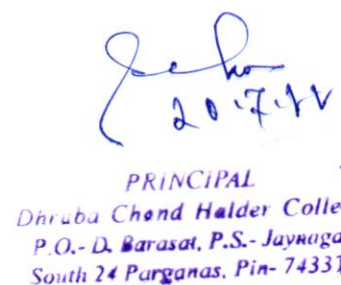 20.7.22
PRINCIPAL
Dhruba Chand Halder Colle
P.O.- D. Barasat, P.S.- Jaynaga
South 24 Parganas, Pin- 74337